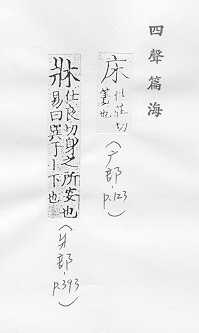 四聲篇海
床 仕莊切
(广部-p.123)
牀 仕良切身之所安也
易曰巽于牀下也
(爿部-p.393)